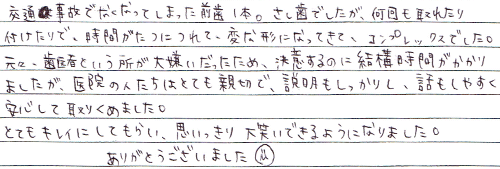 交通事故でなくなってしまった前歯1本。さし歯でしたが、何回も取れたり
付けたりで、時間がたつにつれて、変な形になってきて、コンプレックスでした。
元々、歯医者という所が大嫌いだったため、決意するのに結構時間がかかり
ましたが、医院の人たちはとても親切で、説明もしっかりし、話もしやすく
安心して取りくめました。
とてもキレイにしてもらい、思いっきり大笑いできるようになりました。
ありがとうございました